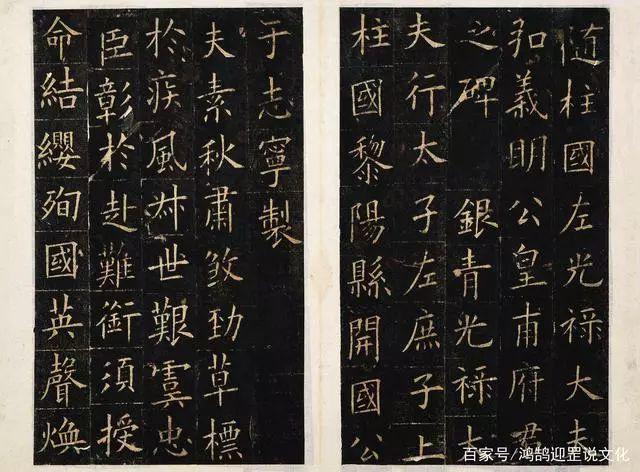 随柱國左光祿大夫
弘義明公皇甫府君
之碑 銀青光祿大
夫行太子左庶子上
柱國黎陽縣開國公
于志寧製
夫素秋肅煞勁草標
於疾風叔世艱虞忠
臣彰於赴難銜須授
命結纓殉國英聲煥
百家号/鸿鹄迎罡说文化